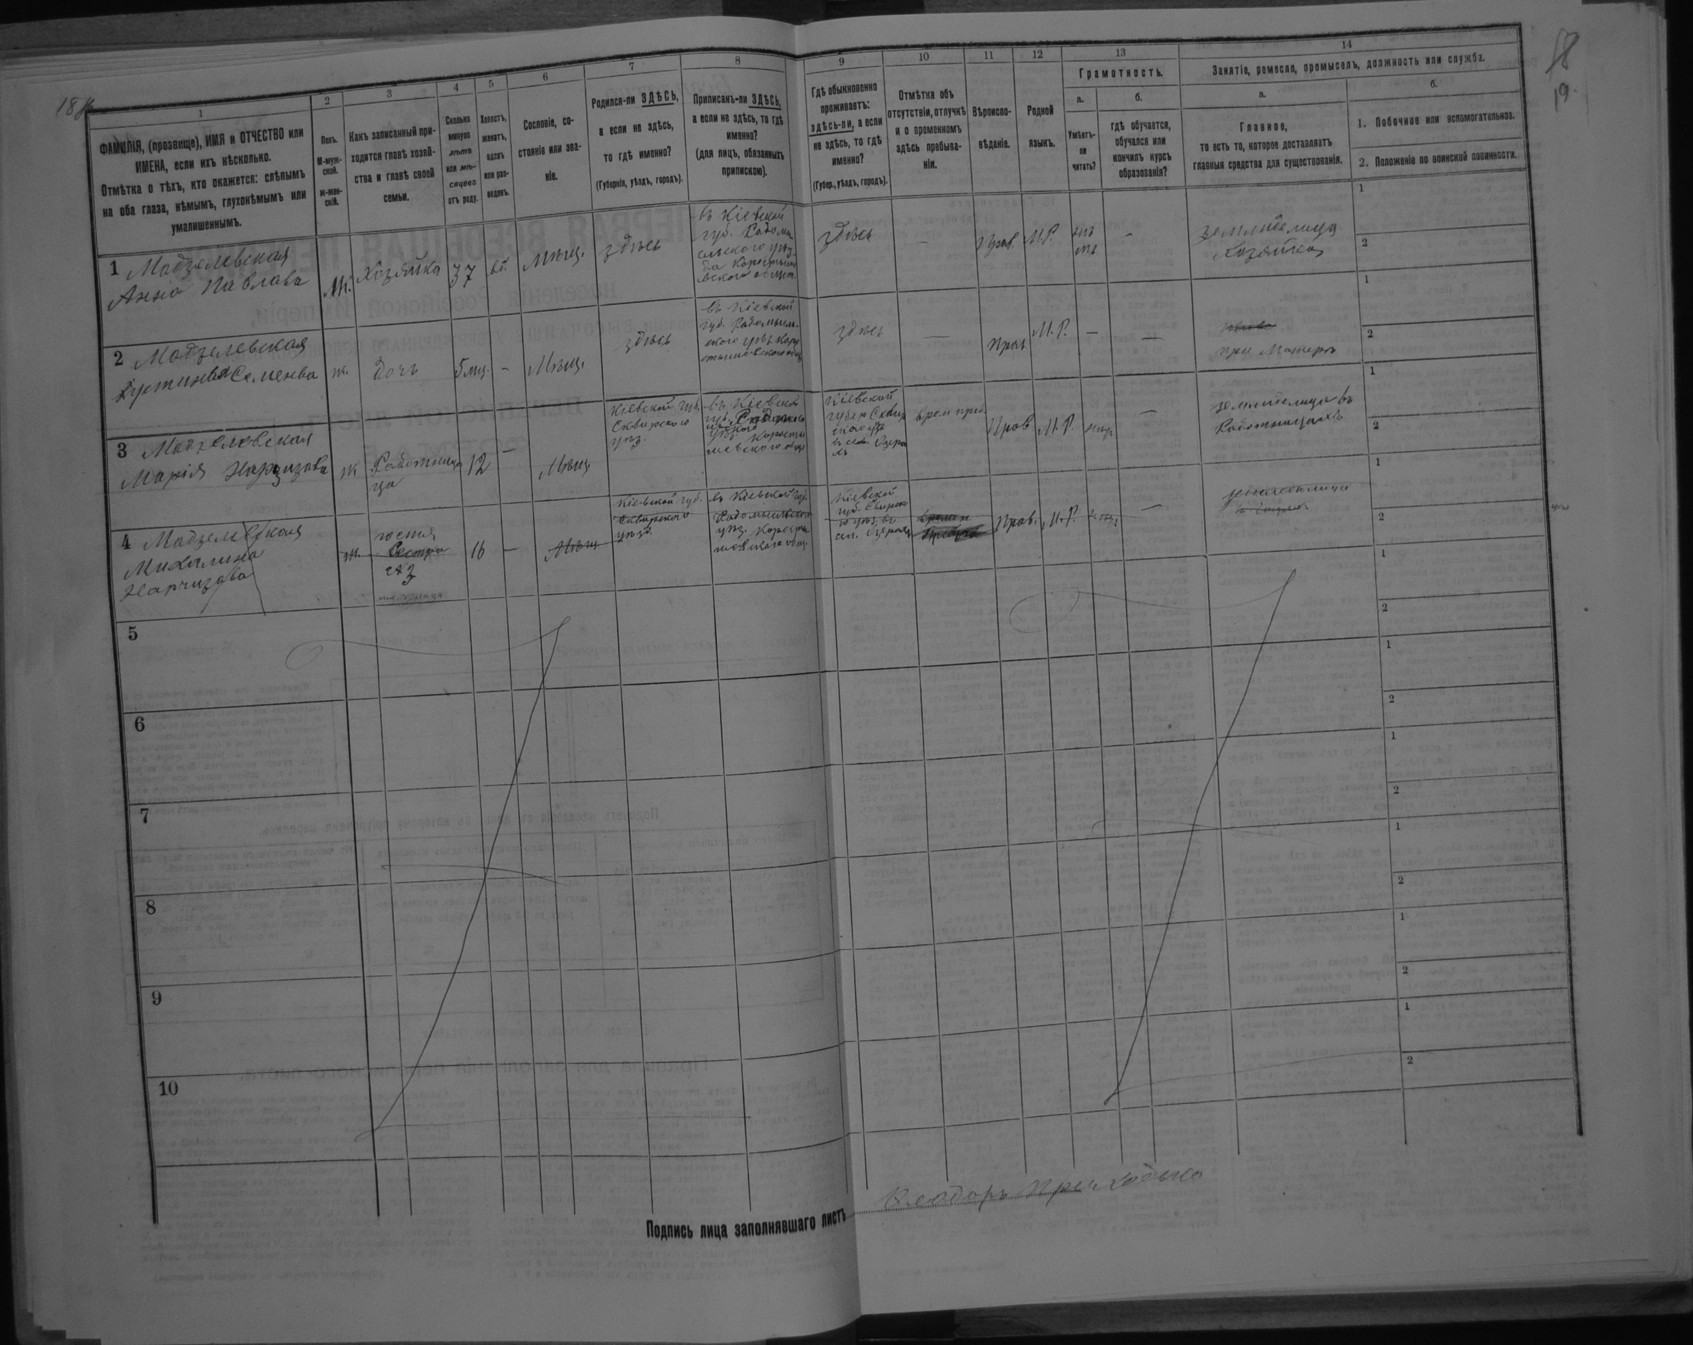 18
19.
1 2 3 4 5 6 7 8 9 10 11 12 13 14
ФАМИЛІЯ, (прозвище), ИМЯ и ОТЧЕСТВО или
ИМЕНА, если ихъ нѣсколько.
Отмѣтка о тѣхъ, кто окажется: слѣпымъ
на оба глаза, нѣмымъ, глухонѣмымъ или
умалишеннымъ.
Полъ.
М-муж-
ской.
ж-жен-
скій.
Какъ записанный при-
ходится главѣ хозяй-
ства и главѣ своей
семьи.
Сколько
минуло
лѣтъ
или мѣ-
сяцевъ
отъ роду.
Холостъ,
женатъ,
вдовъ
или раз-
веденъ.
Сословіе, со-
стояніе или зва-
ніе.
Родился-ли ЗДѢСЬ,
а если не здѣсь,
то гдѣ именно?
(Губернія, уѣздъ, городъ).
Приписанъ-ли ЗДѢСЬ,
а если не здѣсь, то гдѣ
именно?
(для лицъ, обязанныхъ
припискою).
Гдѣ обыкновенно
проживаетъ:
здѣсь-ли, а если
не здѣсь, то гдѣ
именно?
(Губер., уѣздъ, городъ).
Отмѣтка объ
отсутствіи, отлучкѣ
и о временномъ
здѣсь пребыва-
ніи.
Вѣроиспо-
вѣданіе.
Родной
языкъ.
Грамотность.
а.
Умѣетъ-
ли
читать?
б.
гдѣ обучается,
обучался или
кончилъ курсъ
образованія?
Занятіе, ремесло, промыселъ, должность или служба.
а.
Главное,
то есть то, которое доставляетъ
главныя средства для существованія.
б.
1. Побочное или вспомогательное.
2. Положеніе по воинской повинности.
1 Мадзелевская
Анна Павлова
Ж.
Хозяйка
37
вд.
Мѣщ.
здѣсь
въ Кіевской
губ. Радомы
сльского уѣз
здѣсь
—
Прав.
М.Р.
—
земледелица
Хозяйка
1
2
2 Мадзелевская
Семенова
ж.
дочь
5 мц.
—
Мѣщ.
здѣсь
въ Кіевской
губ. Радомысль
ского уѣз.
здѣсь
—
Прав.
М.Р.
—
—
при Матери
1
2
3 Мадзелевская
Марія Нарцизова
ж
Работница
12
—
Мѣщ
Кіевской губ.
Сквирского
уѣз.
въ Кіевской
Кіевской
губер Сквир
ского уѣз
врем преб.
Прав
М.Р.
—
земледелица въ
Работницахъ
1
2
4 Мадзелевская
Михалина
Нарцизова
ж.
гостья
Сестра
16
—
Мѣщ
Кіевской губ.
Сквирского
уѣзд.
въ Кіевской губ
Радомысльского
уѣз.
Кіевской
губ. Сквирско
Прав.
М.Р.
—
1
2
5
1
2
6
1
2
7
1
2
8
1
2
9
1
2
10
1
2
Подпись лица заполнявшаго листъ
Приходько